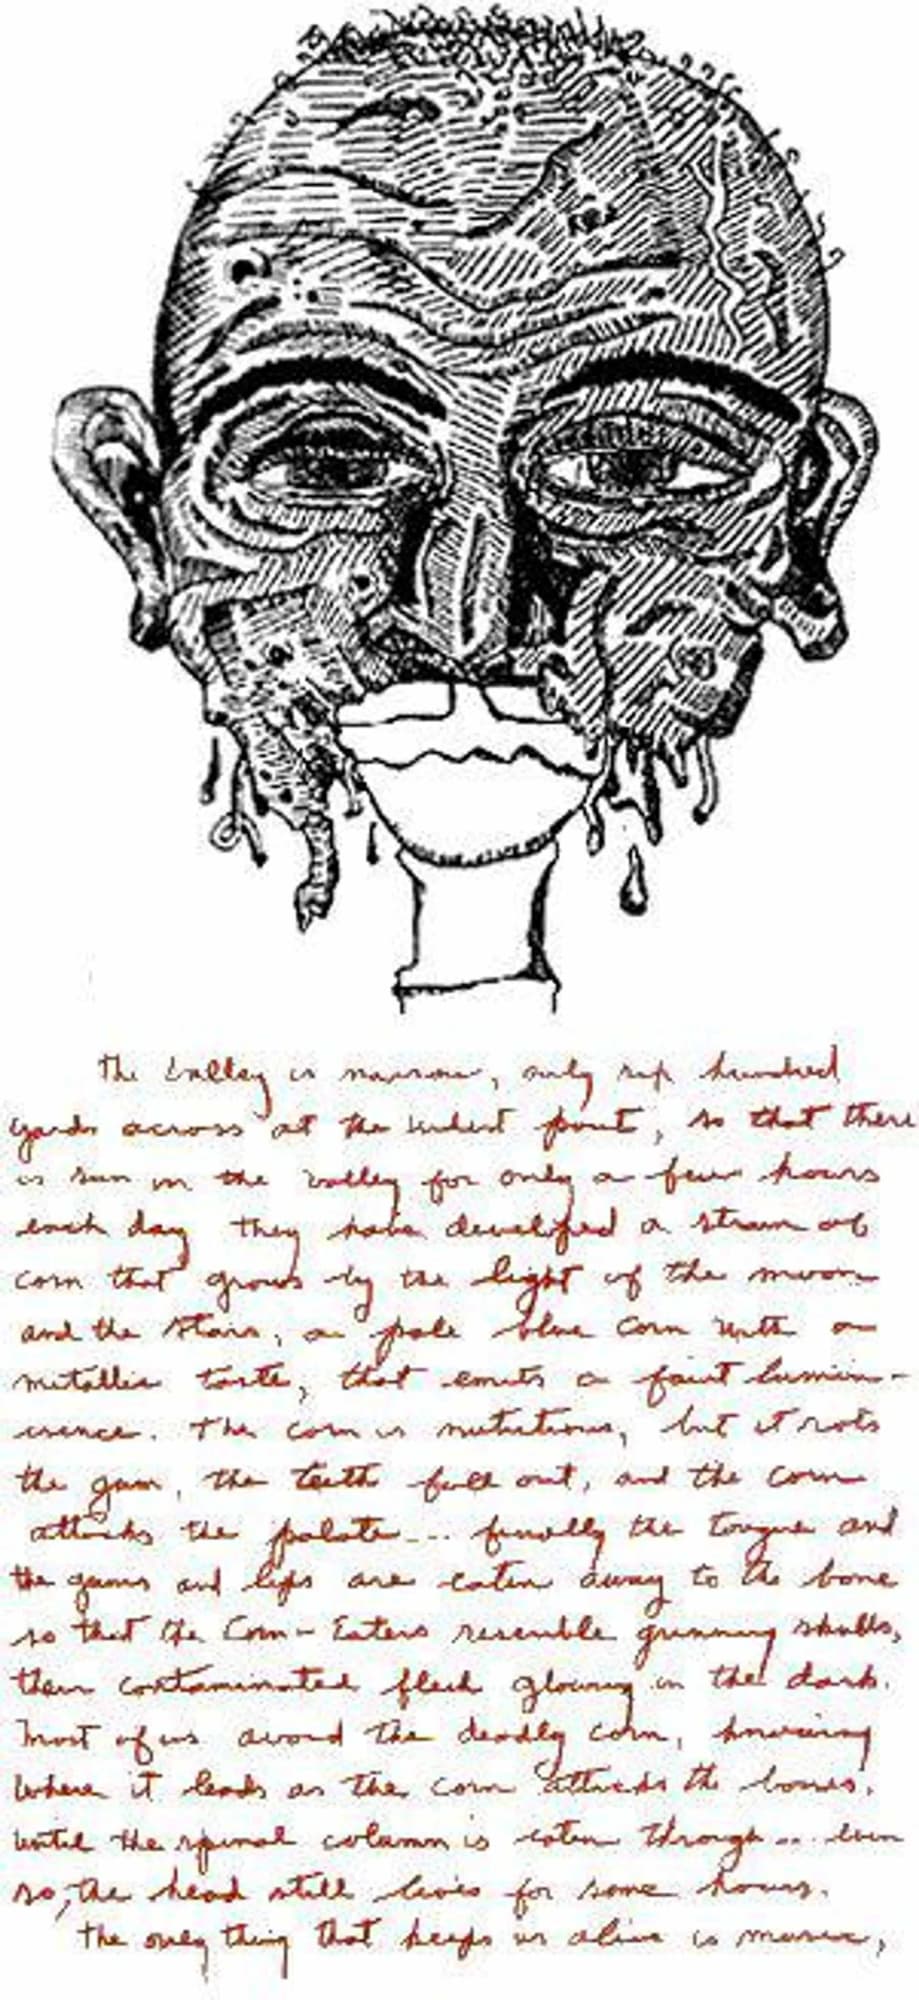 The Valley is narrow, only six hundred
yards across at the widest point, so that there
is sun in the valley for only a few hours
each day They have developed a strain of
corn that grows by the light of the moon
and the stars, a pale blue corn with a
metallic taste, that emits a faint lumin-
escence. The corn is nutritious, but it rots
the gum, the teeth fall out, and the corn
attacks the palate... finally the tongue and
the gums and lips are eaten away to the bone
so that the Corn-Eaters resemble grinning skulls,
their contaminated flesh glowing in the dark.
Most of us avoid the deadly corn, knowing
where it leads as the corn attacks the bones,
until the spinal column is eaten through... even
so, the head still lives for some hours.
The only thing that keeps us alive is music,